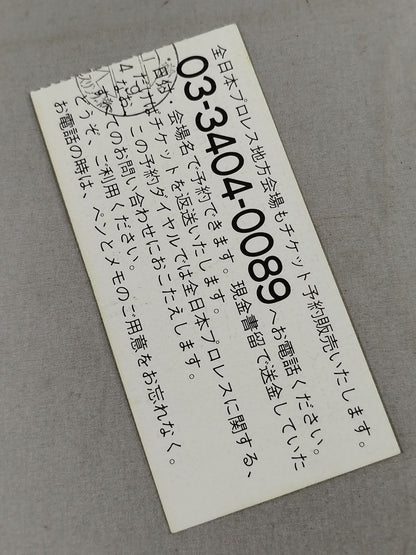 全日本プロレス地方会場もチケット予約販売いたします。
03-3404-0089へお電話ください。
・会場名で予約できます。現金書留で送金していた
だけばチケットを返送いたします。
なお、この予約ダイヤルでは全日本プロレスに関する、
すべてのお問い合わせにおこたえします。
どうぞ、ご利用ください。
お電話の時は、ペンとメモのご用意をお忘れなく。